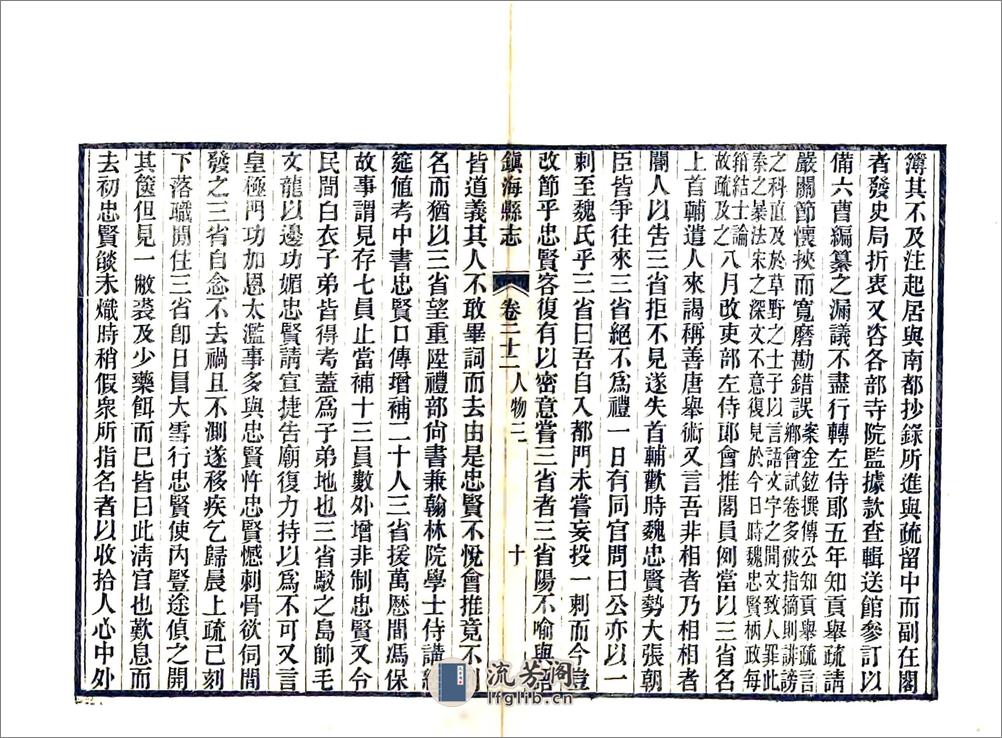 簿其不及注起居與南都抄錄所進與疏留中而副在閣
者發史局折衷又咨各部寺院監據款查輯送館參訂以
備六曹編纂之漏議不盡行轉左侍郎五年知貢舉疏請
嚴關節懷挾而寬磨勘錯誤案金鉝撰傳公知貢舉疏言鄉會試卷多破指摘則誹謗
之科直及於草野之士子以言語文字之間文致人罪此
秦之暴法宋之深文不意復見於今日時魏忠賢柄政每
箝結士論故疏及之八月改吏部左侍郎會推閣員列當以三省名
上首輔遣人來謁稱善唐舉術又言吾非相者乃相相者
閽人以告三省拒不見遂失首輔歡時魏忠賢勢大張朝
臣皆爭往來三省絕不為禮一日有同官問曰公亦以一
刺至魏氏乎三省曰吾自入都門未嘗妄投一刺而今豈
改節乎忠賢客復有以密意嘗三省者三省陽不喻與語
鎮海縣志
卷二十二 人物二
十
皆道義其人不敢畢詞而去由是忠賢不悅會推竟不
名而猶以三省望重陞禮部尚書兼翰林院學士侍講經
筵値考中書忠賢口傳增補二十人三省援萬歷間馮保
故事謂見存七員止當補十三員數外增非制忠賢又令
民間白衣子弟皆得考蓋為子弟地也三省駁之島帥毛
文龍以邊功媚忠賢請宣捷告廟復力持以為不可又言
皇極門功加恩太濫事多與忠賢忤忠賢憾刺骨欲伺間
發之三省自念不去禍且不測遂移疾乞歸晨上疏已刻
下落職閒住三省卽日冒大雪行忠賢使內豎途偵之開
其篋但見一敝裘及少藥餌而已皆曰此淸官也歎息而
去初忠賢燄未熾時稍假衆所指名者以收拾人心中外
流芳阁
lfglib.cn